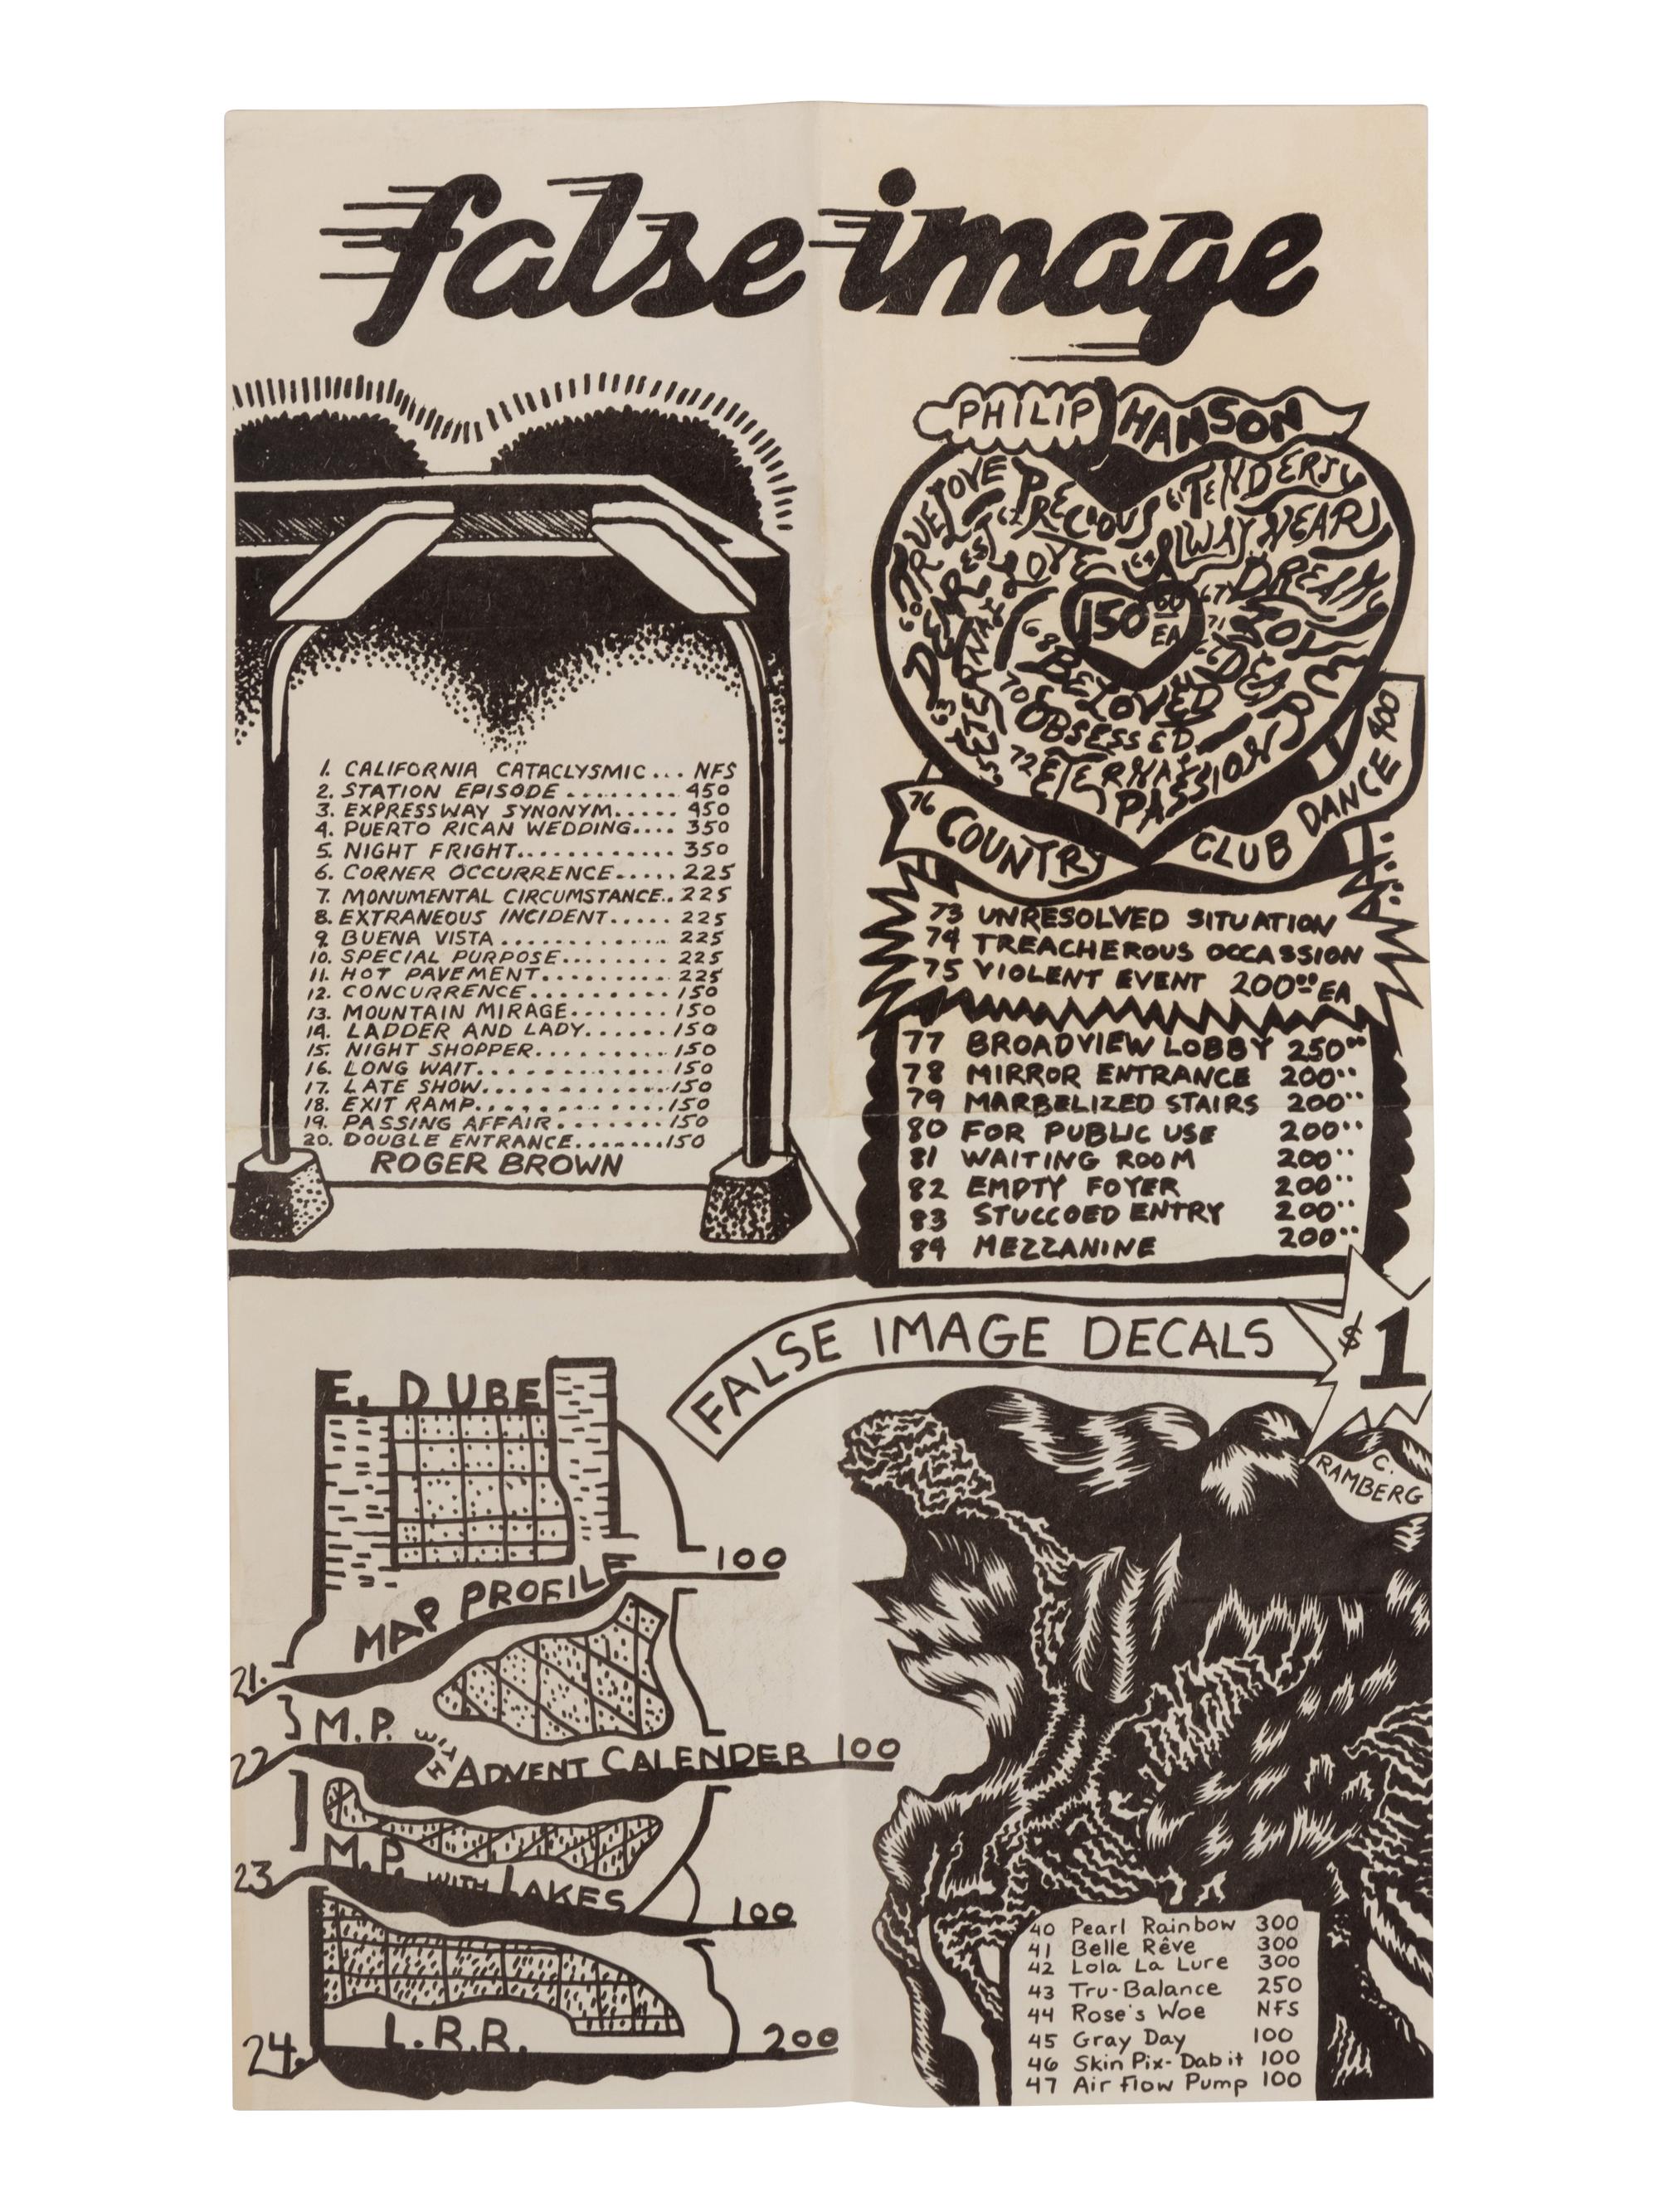 false image
1. CALIFORNIA CATACLYSMIC... NFS
2. STATION EPISODE......... 450
3. EXPRESSWAY SYNONYM..... 450
4. PUERTO RICAN WEDDING.... 350
5. NIGHT FRIGHT............ 350
6. CORNER OCCURRENCE..... 225
7. MONUMENTAL CIRCUMSTANCE.. 225
8. EXTRANEOUS INCIDENT..... 225
9. BUENA VISTA............. 225
10. SPECIAL PURPOSE........ 225
11. HOT PAVEMENT.......... 225
12. CONCURRENCE.......... 150
13. MOUNTAIN MIRAGE....... 150
14. LADDER AND LADY...... 150
15. NIGHT SHOPPER.......... 150
16. LONG WAIT............. 150
17. LATE SHOW............. 150
18. EXIT RAMP............. 150
19. PASSING AFFAIR....... 150
20. DOUBLE ENTRANCE.......150
ROGER BROWN
PHILIP HANSON
TRUE LOVE
PRECIOUS
TENDERLY
DEAREST
LOVE
ALWAY
NEAR
DREAM
150 00 EA
68 BELOVED
DEAR
70 OBSESSED
72 ETERNAL
PASSION
76 COUNTRY CLUB DANCE 400
73 UNRESOLVED SITUATION
74 TREACHEROUS OCCASSION
75 VIOLENT EVENT 200⁰⁰ EA
77 BROADVIEW LOBBY 250⁰⁰
78 MIRROR ENTRANCE 200''
79 MARBELIZED STAIRS 200''
80 FOR PUBLIC USE 200''
81 WAITING ROOM 200''
82 EMPTY FOYER 200''
83 STUCCOED ENTRY 200''
84 MEZZANINE 200''
FALSE IMAGE DECALS $1
E. DUBE
21. MAP PROFILE 100
22 M.P. WITH ADVENT CALENDER 100
23 M.P. WITH LAKES 100
24. L.R.R. 200
C. RAMBERG
40 Pearl Rainbow 300
41 Belle Rêve 300
42 Lola La Lure 300
43 Tru-Balance 250
44 Rose's Woe NFS
45 Gray Day 100
46 Skin Pix-Dabit 100
47 Air Flow Pump 100